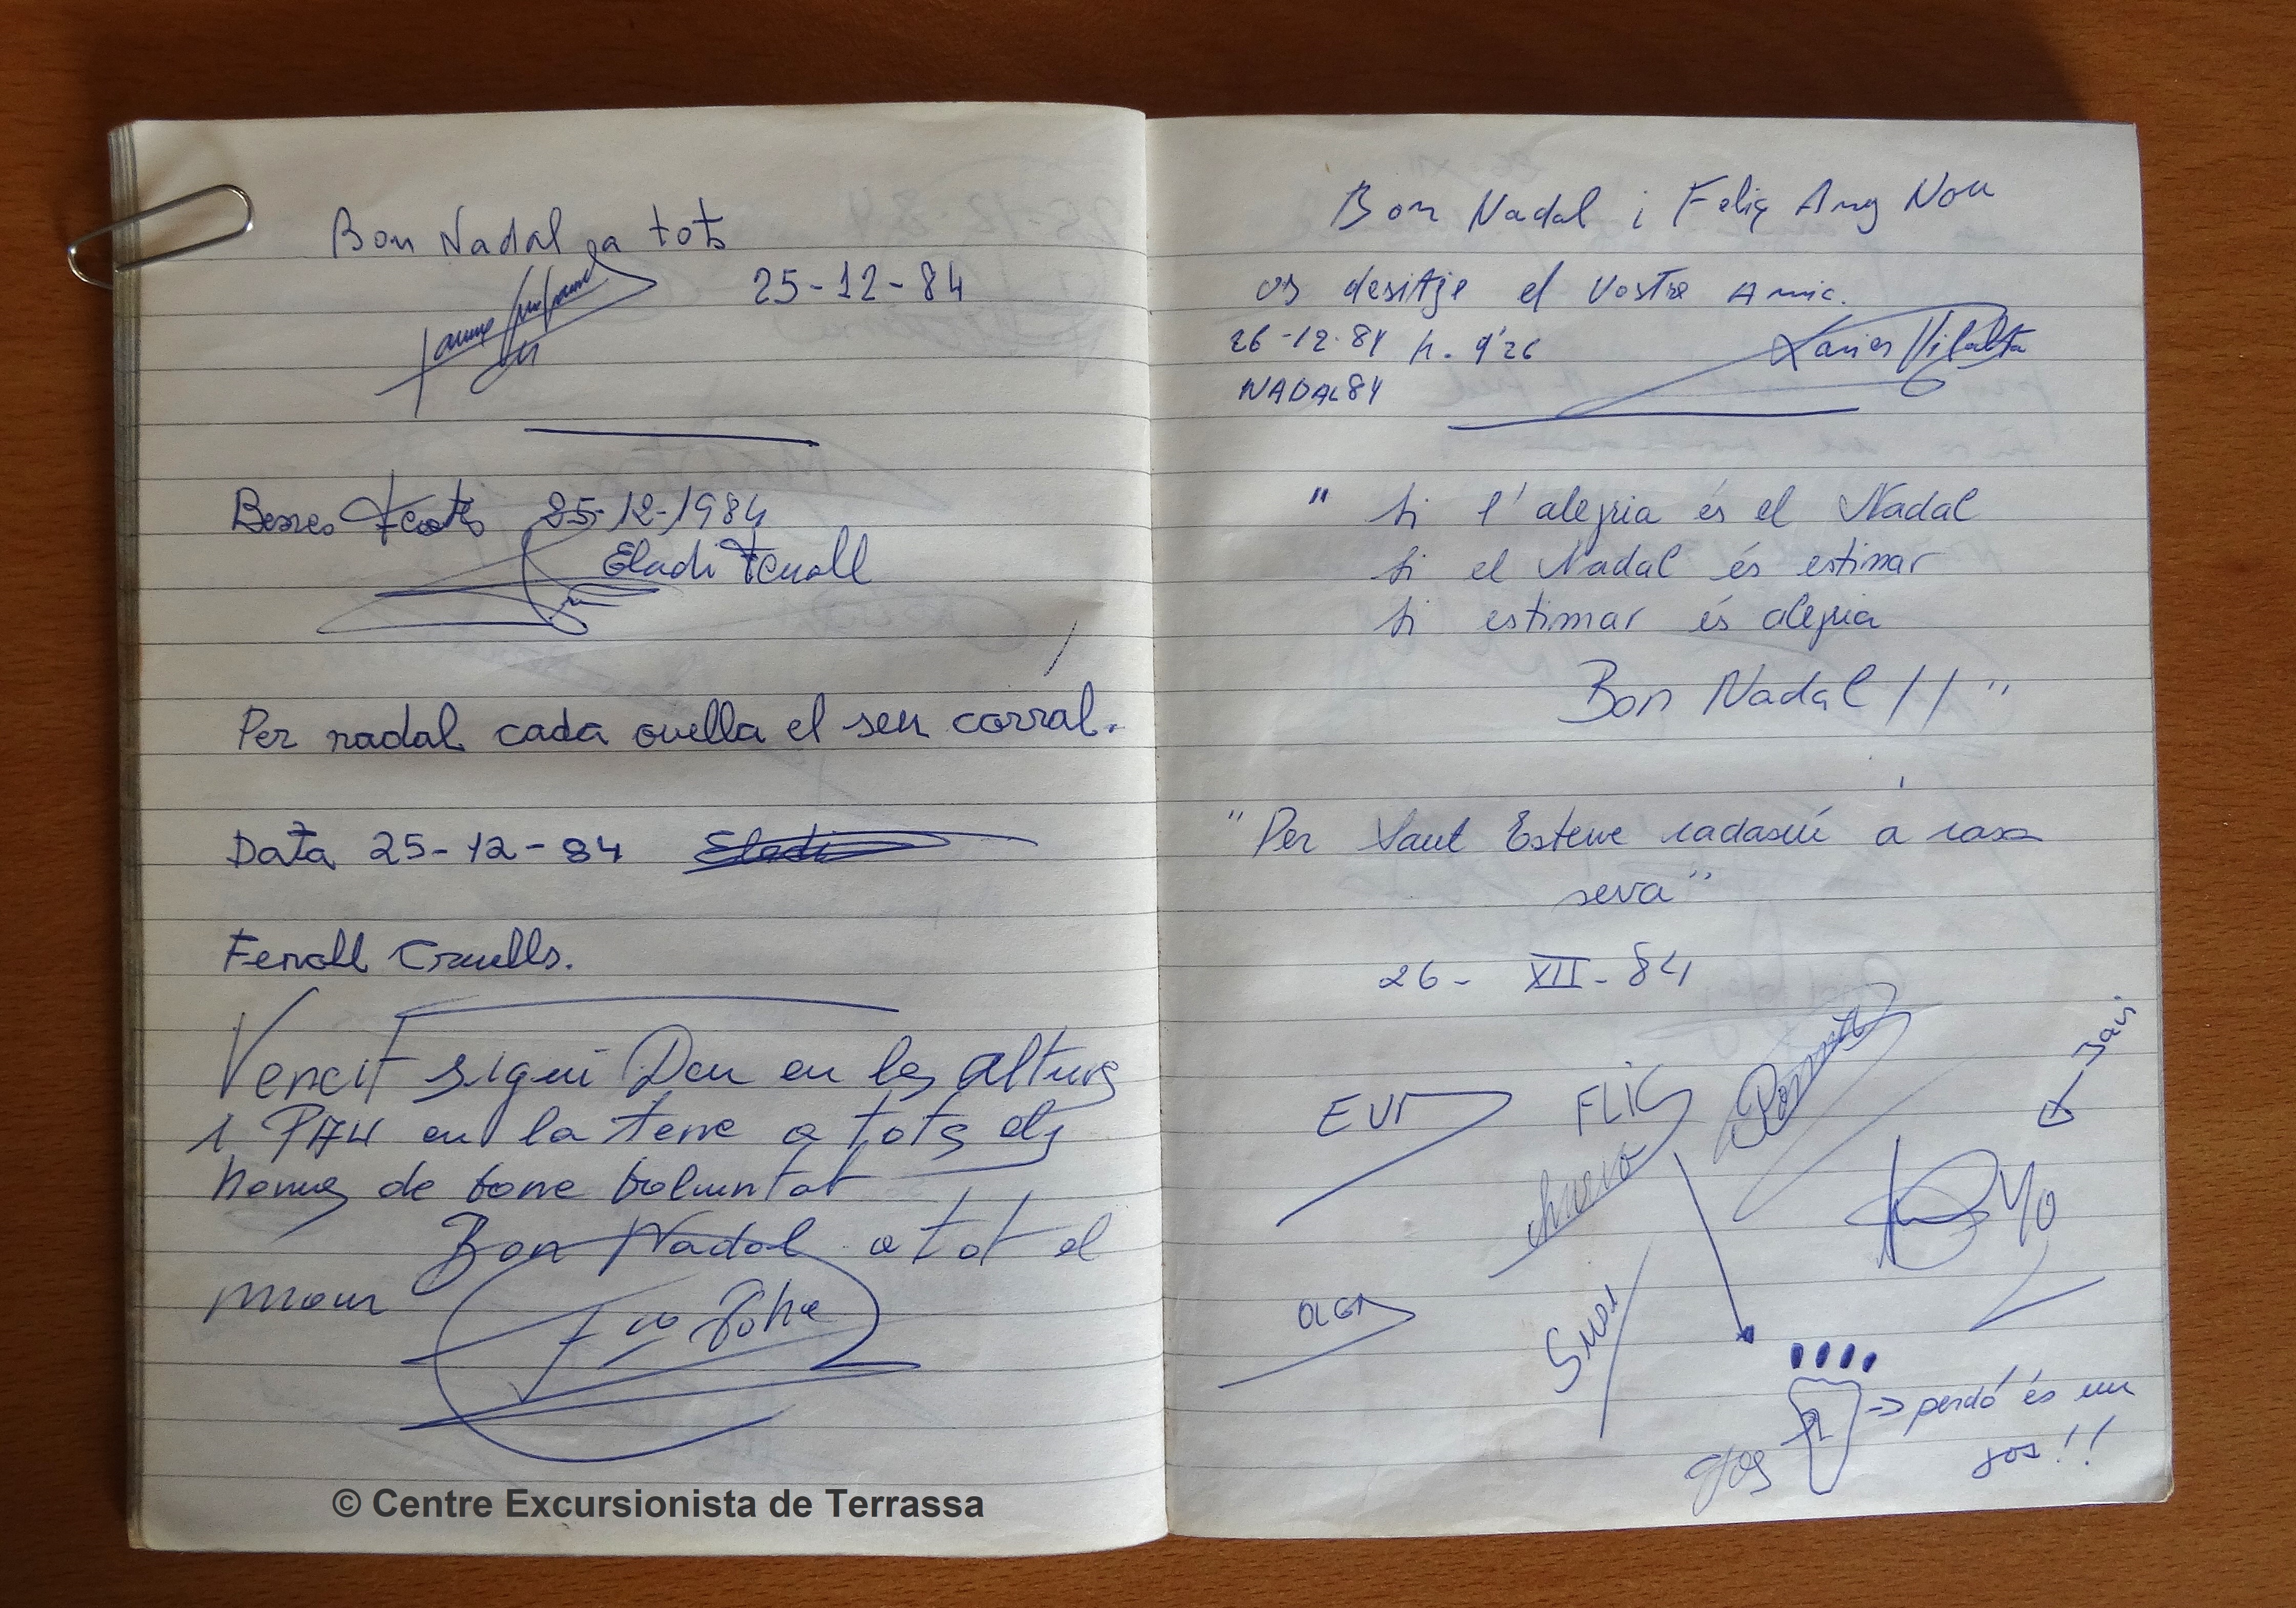 Bon Nadal a tots
25-12-84
Jaume
Bones Festes 25-12-1984
Eladi Fenoll
Per nadal cada ovella el seu corral.
Data 25-12-84 Eladi
Fenoll Cruells.
sigui Deu en les altures
i PAU en la terre a tots els
homes de bone voluntat
Bon Nadal a tot el
mon
Bon Nadal i Feliç Any Nou
os desitje el Vostre Amic.
26-12-84 h. 9'26 Xavier Vilalta
NADAL 84
" Si l'alegria és el Nadal
Si el Nadal és estimar
Si estimar és alegria
Bon Nadal !! "
"Per Sant Esteve cadascú a casa
seva"
26- XII- 84
Javi
EVA FLIC
YO
OLGA
-> perdó és un
gos !!
© Centre Excursionista de Terrassa